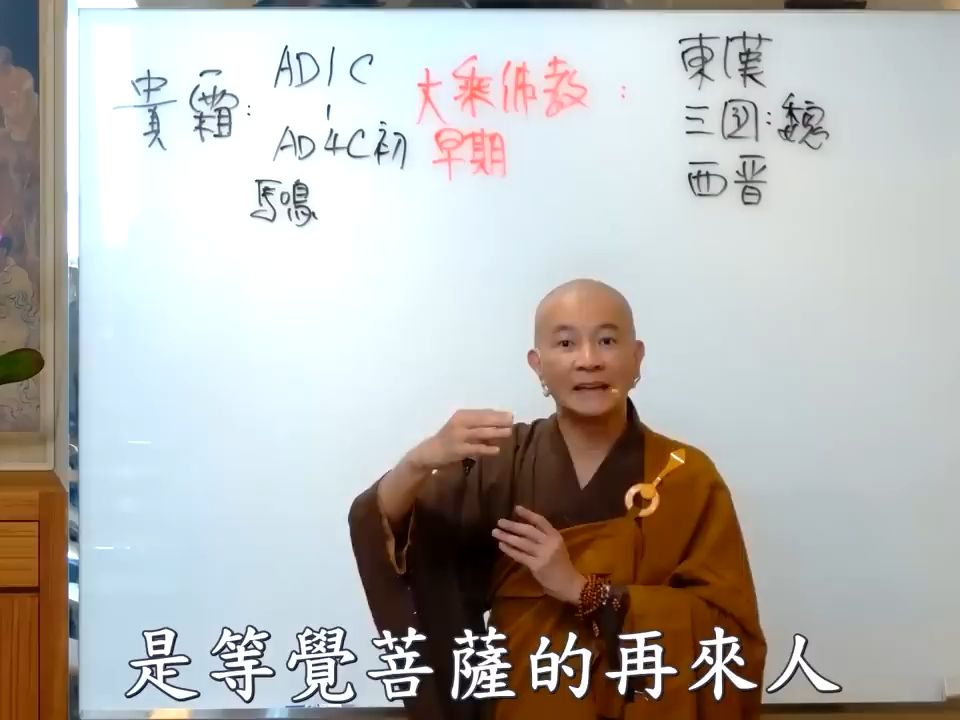 貴霜:
AD1C
|
AD4C初
馬鳴
大乘佛教:
早期
東漢
三國:魏
西晋
是等覺菩薩的再來人